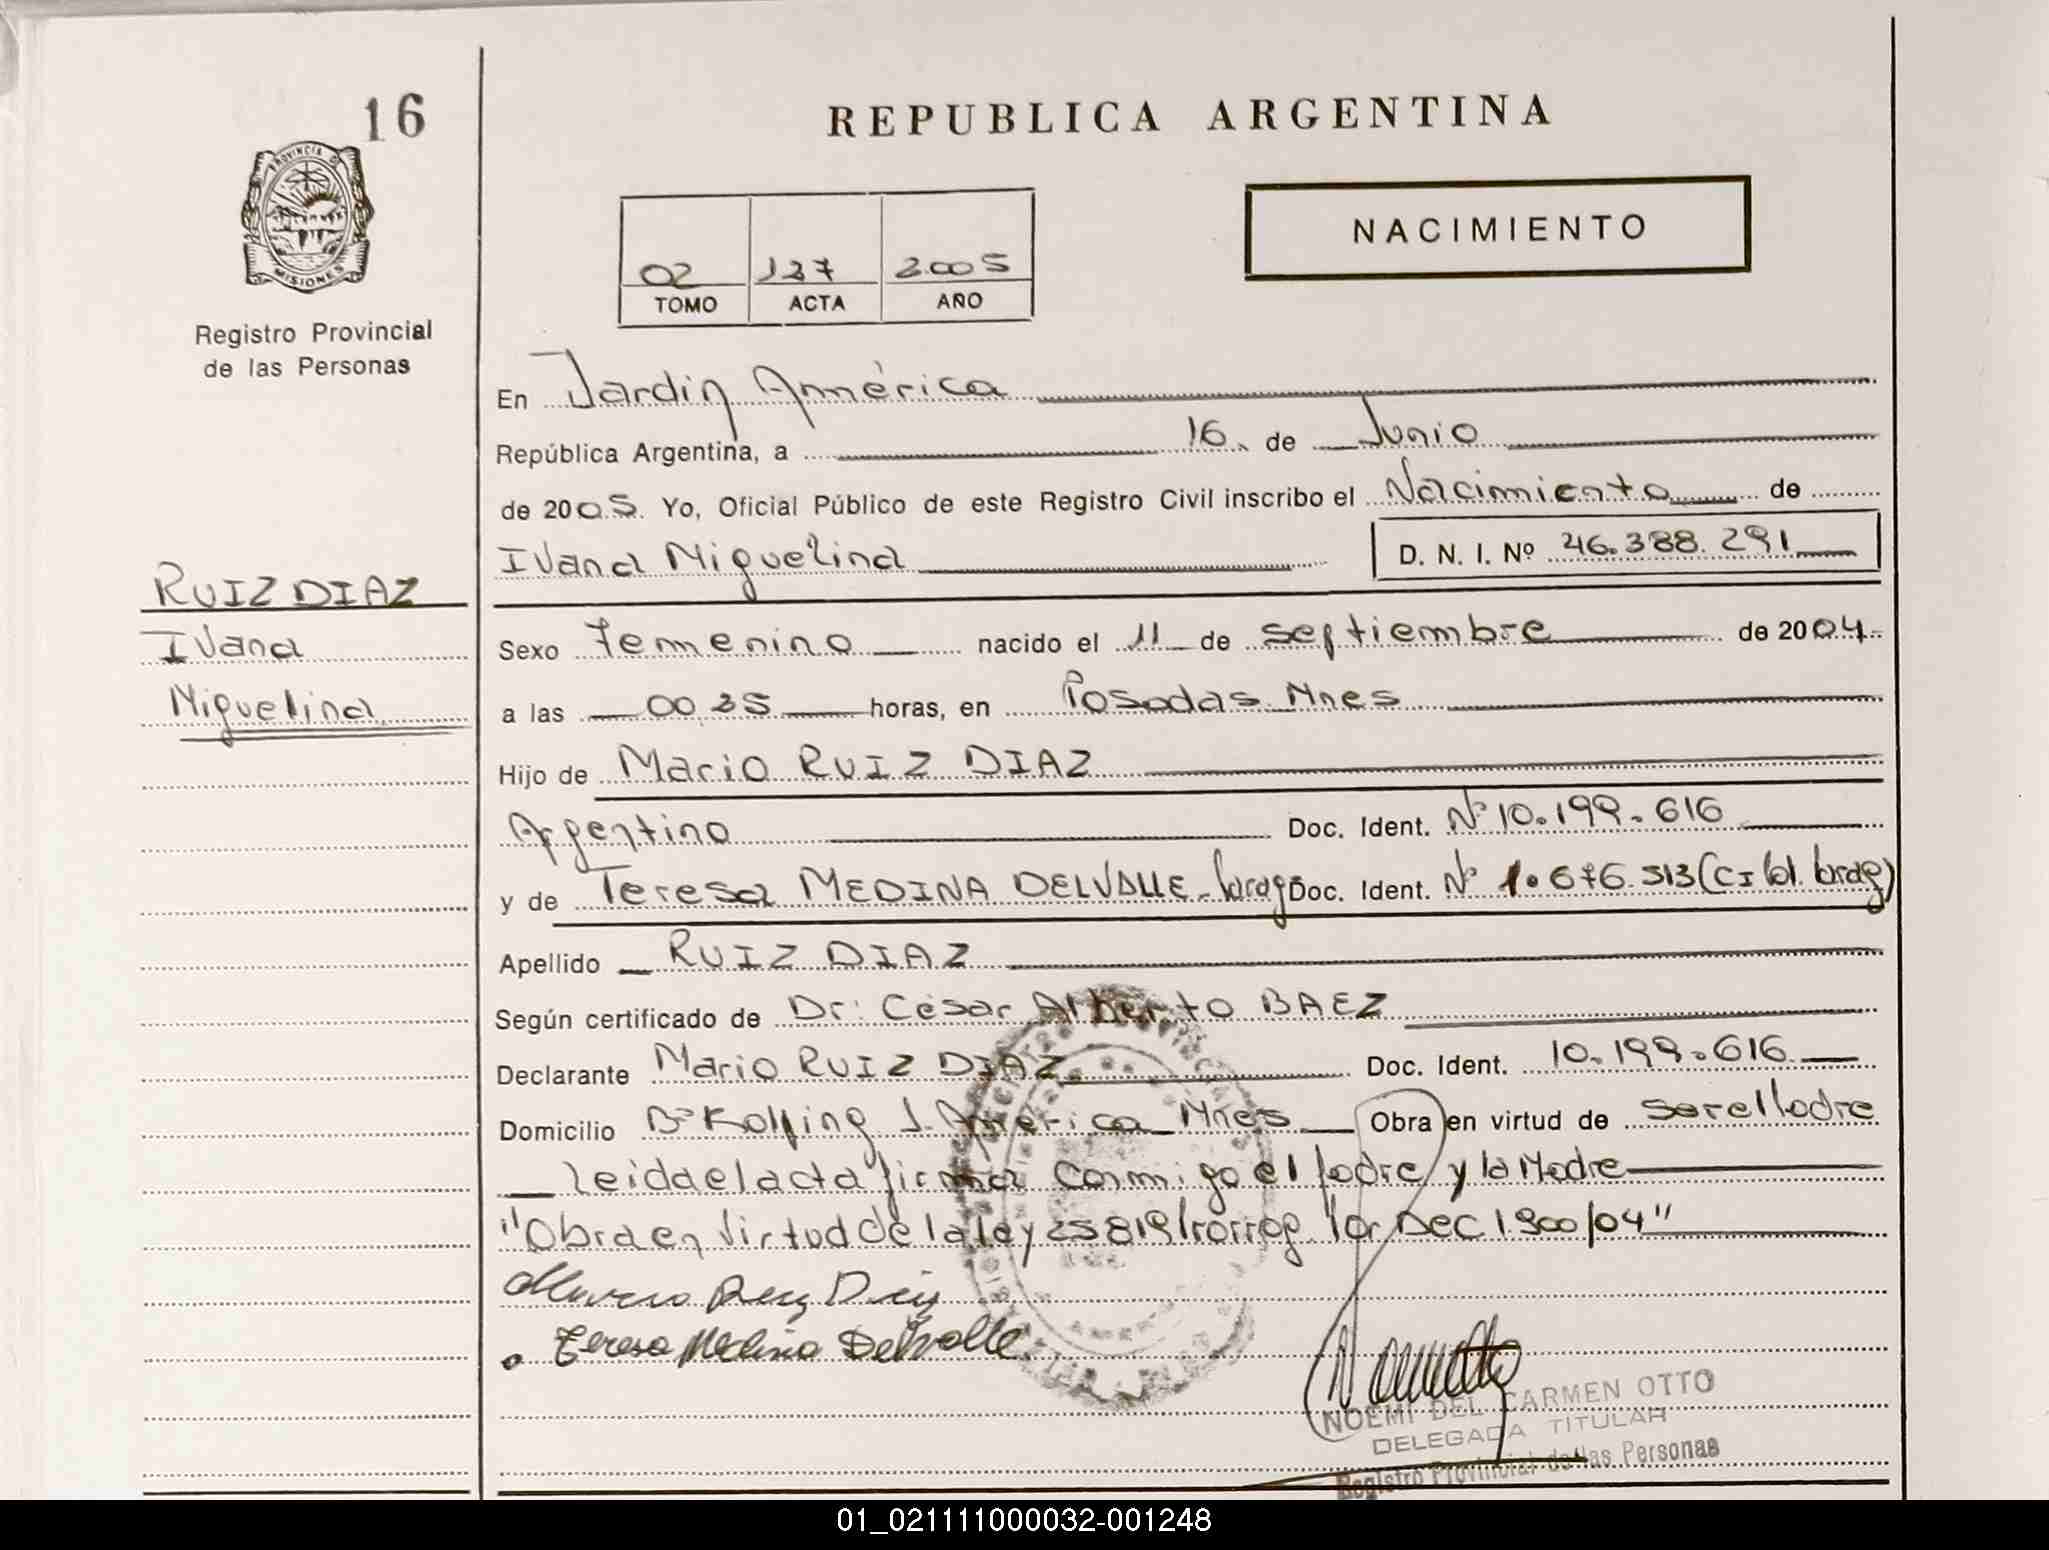 16
REPUBLICA ARGENTINA
PROVINCIA DE
MISIONES
Registro Provincial
de las Personas
NACIMIENTO
02 137 2005
TOMO ACTA AÑO
En Jardin América
República Argentina, a 16 de Junio
de 2005. Yo, Oficial Público de este Registro Civil inscribo el Nacimiento de
Ivana Miguelina D. N. I. Nº 46.388.291
RUIZ DIAZ
Ivana
Miguelina
Sexo Femenino nacido el 11 de septiembre de 2004
a las 00 35 horas, en Posadas Mnes
Hijo de Mario RUIZ DIAZ
Argentino Doc. Ident. Nº 10.199.616
y de Teresa MEDINA DELVALLE Doc. Ident. Nº 1.676.313 (CI
Apellido RUIZ DIAZ
Según certificado de Dr. César Alberto BAEZ
Declarante Mario RUIZ DIAZ Doc. Ident. 10.199.616
Domicilio Bº Kolping J. América Mnes Obra en virtud de ser el Padre
Leida el acta firma conmigo el Padre y la Madre
"Obra en virtud de la ley 25819 Prorrog. Por Dec 1.900/04"
Mario Ruiz Diaz
Teresa Medina Delvalle
NOEMI DEL CARMEN OTTO
DELEGADA TITULAR
Registro Provincial de las Personas
01_021111000032-001248